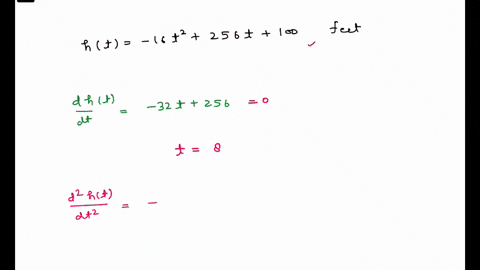 h(t) = -16t² + 256t + 100 feet
dh(t)/dt = -32t + 256 = 0
t = 8
d²h(t)/dt² = -